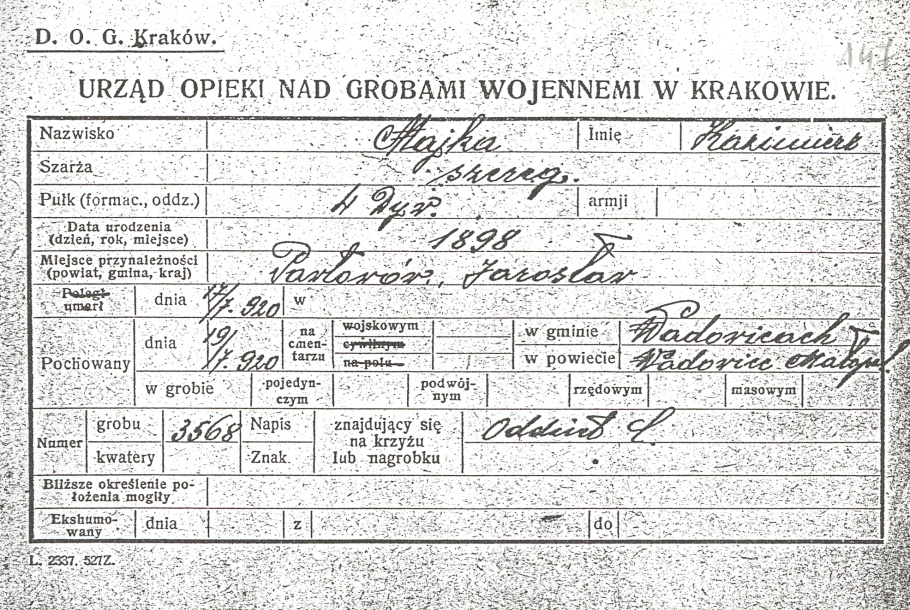 D. O. G. Kraków.
147
URZĄD OPIEKI NAD GROBAMI WOJENNEMI W KRAKOWIE.
Nazwisko Majka Imię Kazimierz
Szarża szereg.
Pułk (formac., oddz.) 4 Dyr. armji
Data urodzenia
(dzień, rok, miejsce) 1898
Miejsce przynależności
(powiat, gmina, kraj) Jarosław
Poległ
umarł dnia 17/7. 920 w
Pochowany dnia 19/7. 920 na cmen-tarzu wojskowym
cywilnym
na polu w gminie Wadowicach
w powiecie Wadowice Małopol.
w grobie pojedyn-czym podwój-nym rzędowym masowym
Numer grobu 3568 Napis znajdujący się
na krzyżu
lub nagrobku Oddział
kwatery Znak.
Bliższe określenie po-
łożenia mogiły
Ekshumo-
wany dnia z do
L. 2337. 527Z.